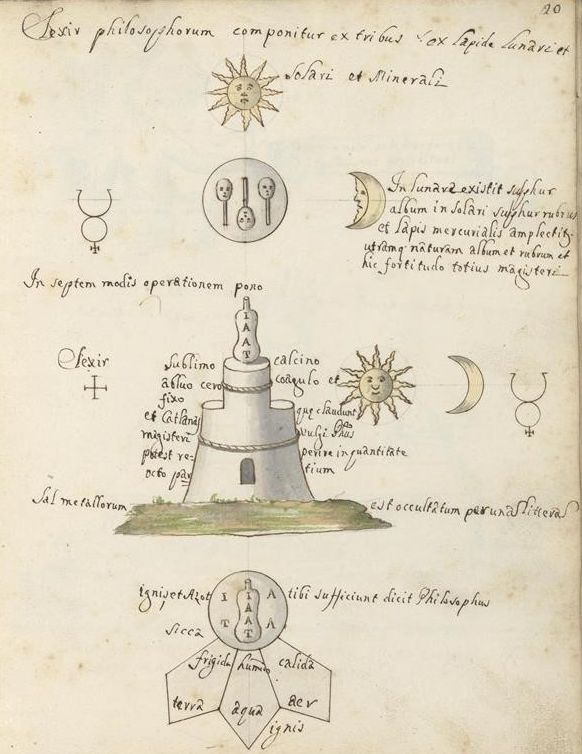 20
Lexir philosophorum componitur ex tribus ex lapide Lunari et
solari et Minerali
In lunari existit sulphur
album in solari sulphur rubrum
et lapis mercurialis amplectitur
utramq naturam album et rubrum et
hic fortitudo totius magisteri
In septem modis operationem pono
I
A
A
T
Lexir
sublimo calcino
abluo cero coagulo et
fixo
et Catlana que claudunt
magisteri vulgi Phus
potest re- perire in quantitate
octo par tium
Sal metallorum est occultatum per unas litteras
ignis et Azot tibi sufficiunt dicit Philosophus
I A
I
A
A
T
T A
sicca
frigida humid calida
terra aqua aer
ignis